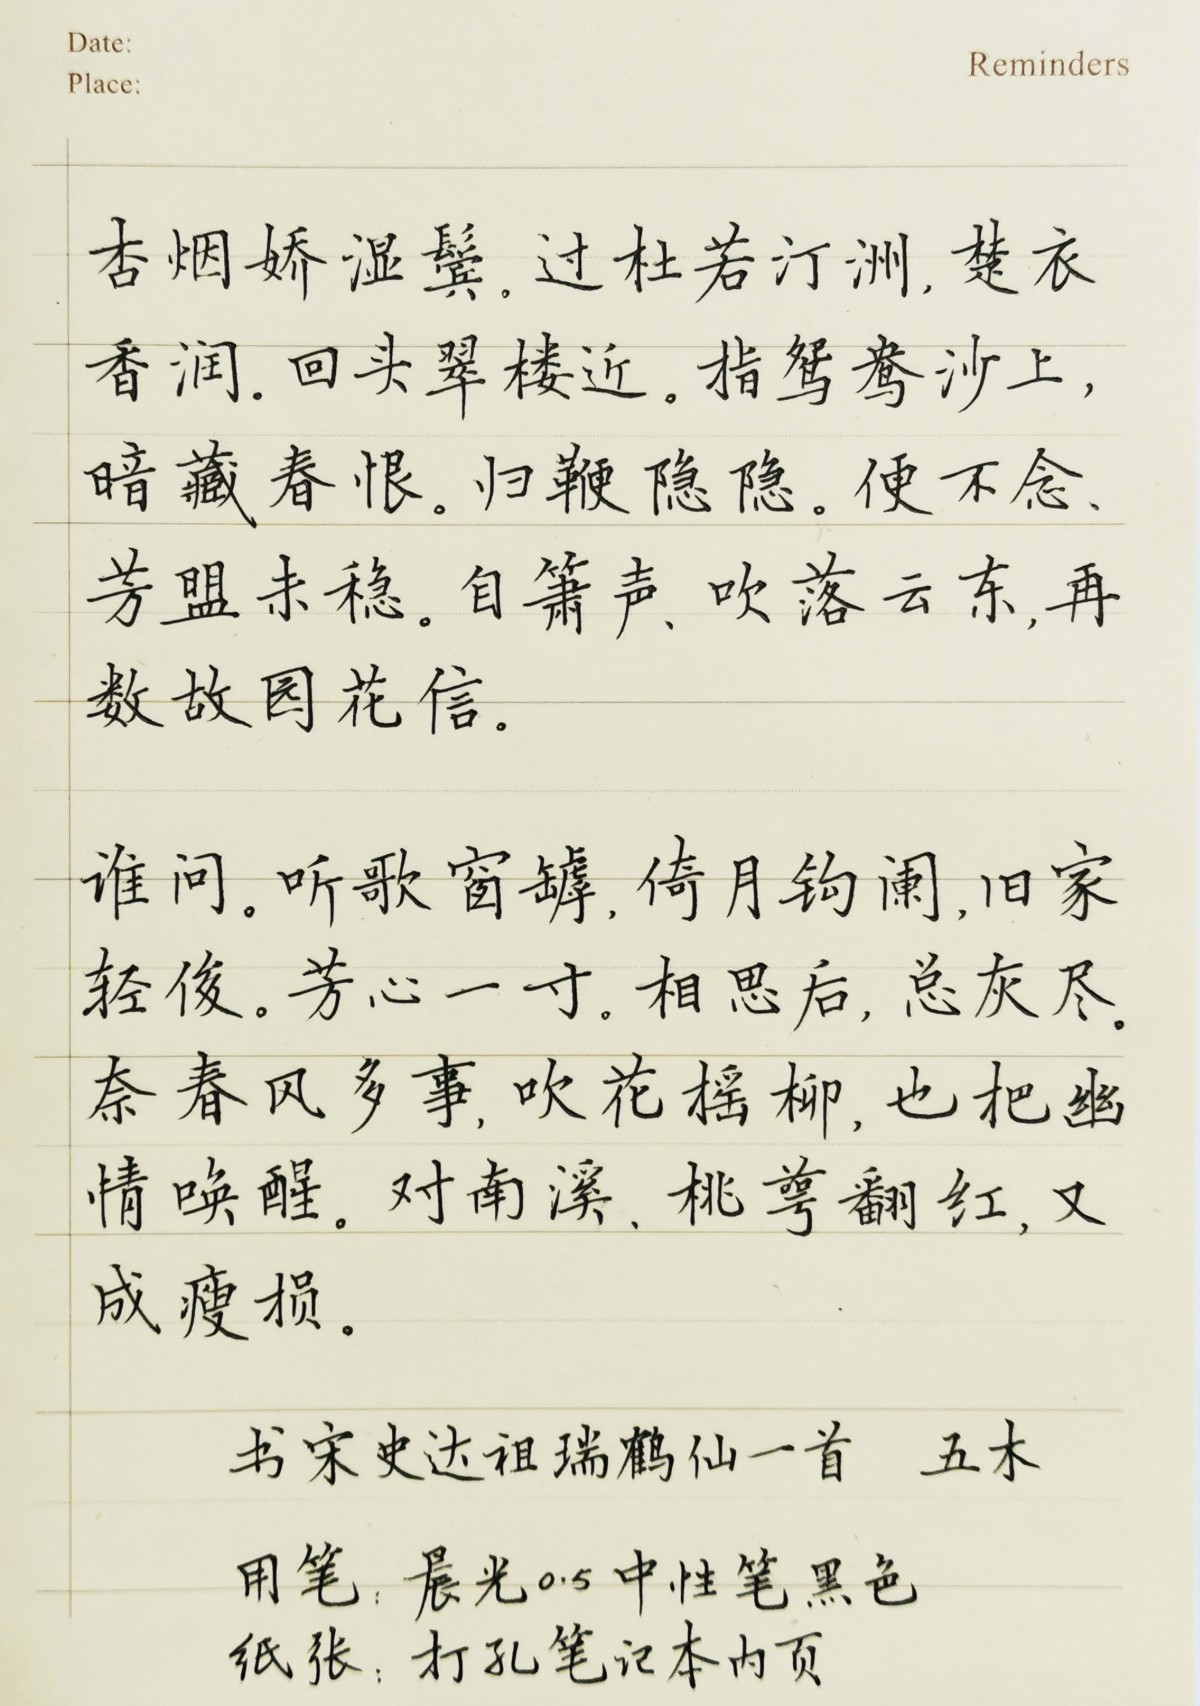 Date:
Place:
Reminders
杏烟娇湿鬓。过杜若汀洲，楚衣
香润。回头翠楼近。指鸳鸯沙上，
暗藏春恨。归鞭隐隐。便不念、
芳盟未稳。自箫声、吹落云东，再
数故园花信。
谁问。听歌窗罅，倚月钩阑，旧家
轻俊。芳心一寸。相思后，总灰尽。
奈春风多事，吹花摇柳，也把幽
情唤醒。对南溪、桃萼翻红，又
成瘦损。
书宋史达祖瑞鹤仙一首 五木
用笔：晨光0.5中性笔黑色
纸张：打孔笔记本内页